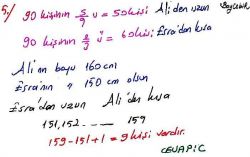 5.) 90 kişinin 5/9 u = 50 kişi Ali'den uzun
90 kişinin 6/9 ü = 60 kişi Esra'dan kısa
Ali'nin boyu 160 cm
Esra'nın " 150 cm olsun
Esra'dan uzun Ali'den kısa
151, 152 ...... 159
159 - 151 + 1 = 9 kişi vardır.
CEVAP: C